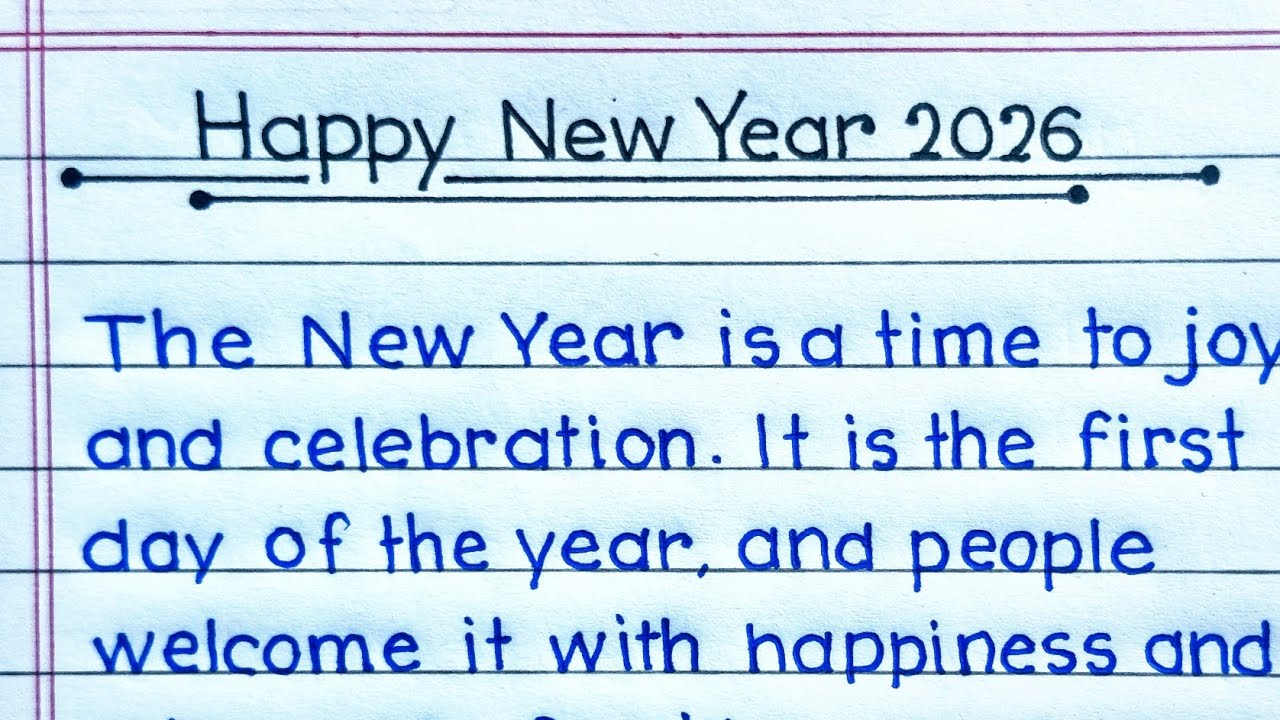 Happy New Year 2026
The New Year is a time to joy
and celebration. It is the first
day of the year, and people
welcome it with happiness and